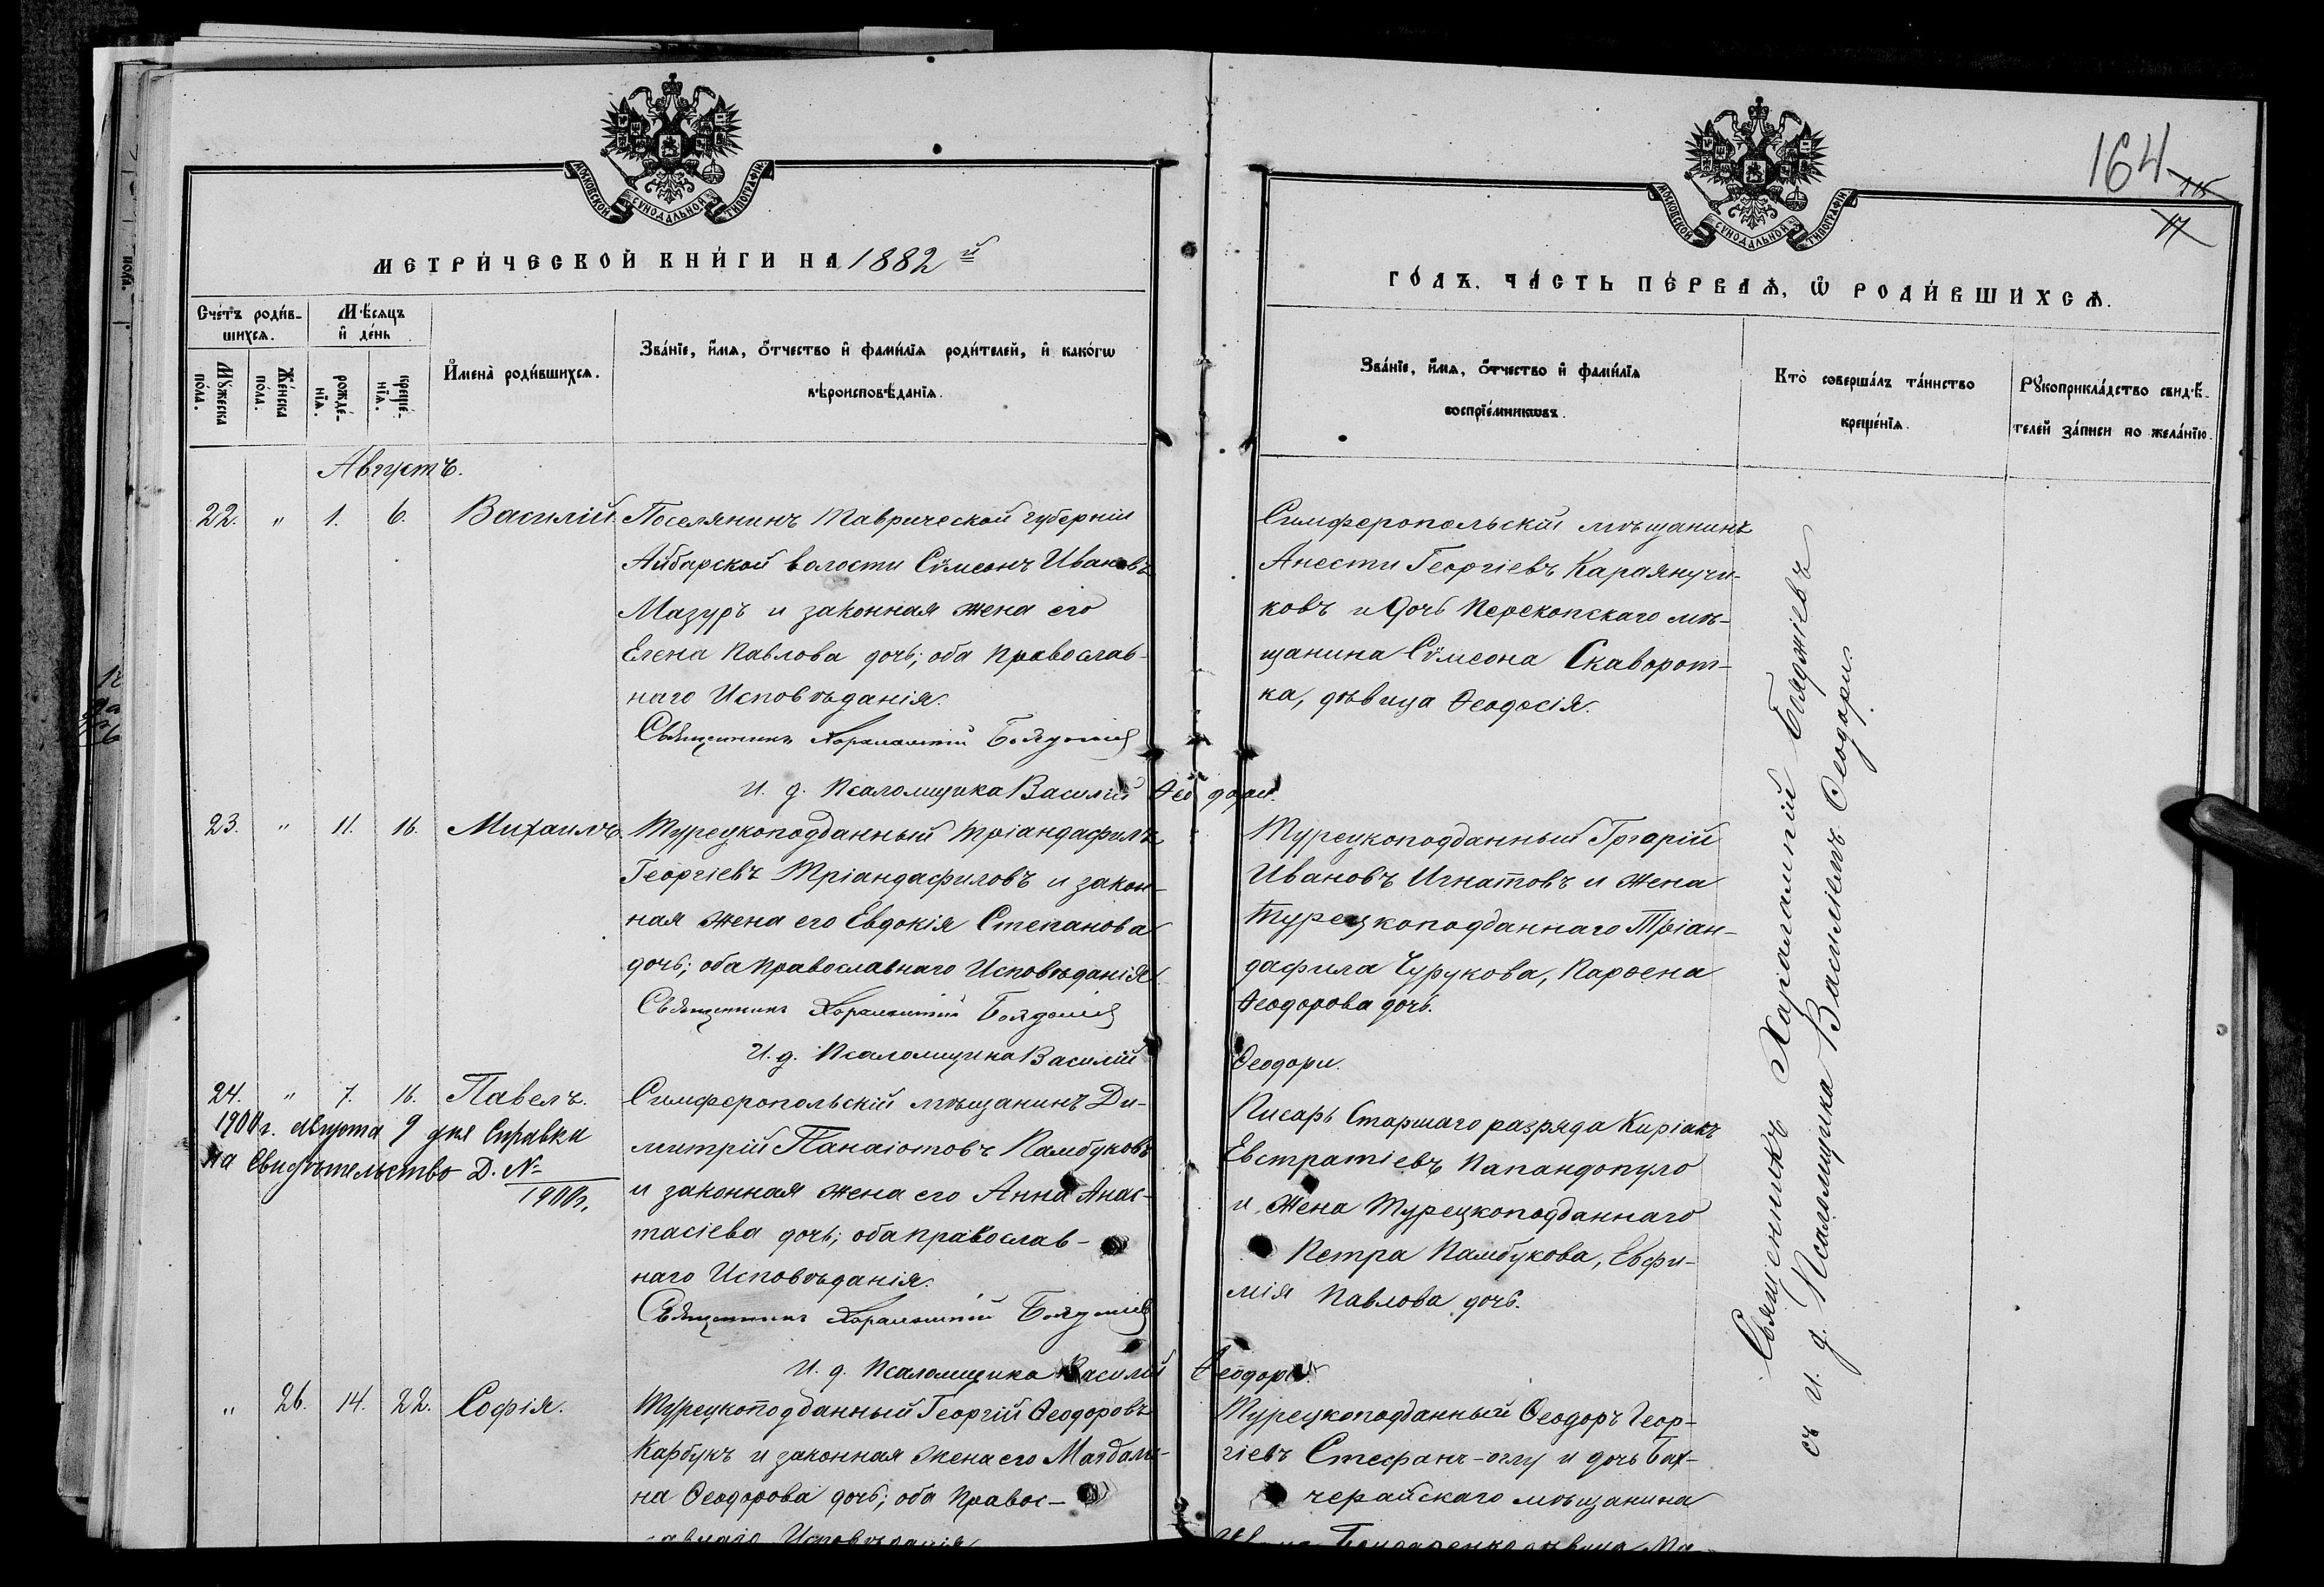 МОСКОВСКОЙ СѴНОДАЛЬНОЙ ТИПОГРАФІИ
МЕТРИ́ЧЕСКОЙ КНИ́ГИ НА 1882й
Сче́тъ роди́в-
шихсѧ.
Мѣ́сяцъ
и҆ де́нь
Мꙋ́жеска
по́ла.
Же́нска
по́ла.
рожде́-
нїѧ.
креще́-
нїѧ.
И҆мена̀ роди́вшихсѧ.
Зва́нїе, и҆́мѧ, ѻ҆́тчество и҆ фами́лїѧ роди́телей, и҆ како́гѡ
вѣроисповѣ́данїѧ.
Августъ.
22. " 1. 6. Василій.
Поселянинъ Таврической губерніи
Айбарской волости Сѵмеонъ Ивановъ
Мазуръ и законная жена его
Елена Павлова дочь; оба православ-
наго Исповѣданія.
Священникъ Харалампій Бояджіев
И. д. Псаломщика Василій Ѳеодори.
23. " 11. 16. Михаилъ.
Турецкоподданный Тріандафилъ
Георгіевъ Тріандафиловъ и закон-
ная жена его Евдокія Степанова
дочь; оба православнаго Исповѣданія.
Священникъ Харалампій Бояджіев
И. д. Псаломщика Василій Ѳеодори.
24. " 7. 16. Павелъ.
1900 г. Августа 9 дня Справки
на Свидѣтельство Д. №
1900 г.
Симферопольскій мѣщанинъ Ди-
митрій Панаіотовъ Памбуковъ
и законная жена его Анна Анас-
тасіева дочь; оба православ-
наго Исповѣданія.
Священникъ Харалампій Бояджіев
И. д. Псаломщика Василій Ѳеодори.
" 26. 14. 22. Софія.
Турецкоподданный Георгій Ѳеодоровъ
Карбукъ и законная жена его Магдали-
на Ѳеодорова дочь; оба правос-
лавнаго Исповѣданія
164
МОСКОВСКОЙ СѴНОДАЛЬНОЙ ТИПОГРАФІИ
ГО́ДЪ, ЧА́СТЬ ПЕ́РВАѦ, Ѽ РОДИ́ВШИХСѦ.
Зва́нїе, и҆́мѧ, ѻ҆́тчество и҆ фами́лїѧ
воспрїе́мникѡвъ.
Кто̀ соверша́лъ та́инство
креще́нїѧ.
Рꙋкоприкла́дство свидѣ́-
телей за́писи по жела́нїю.
Симферопольскій мѣщанинъ
Анести Георгіевъ Караянучи-
ковъ и дочь Перекопскаго мѣ-
щанина Сѵмеона Скаворот-
ка, дѣвица Ѳеодосія.
Турецкоподданный Григорій
Ивановъ Игнатовъ и жена
Турецкоподданнаго Тріан-
дафила Чурукова, Парѳена
Ѳеодорова дочь.
Писарь Старшаго разряда Киріакъ
Евстратіевъ Папандопуло
и жена Турецкоподданнаго
Петра Памбукова, Евфи-
мія Павлова дочь.
Турецкоподданный Ѳеодоръ Геор-
гіевъ Стефанъ-оглу и дочь Бах-
черайскаго мѣщанина
Бондаренко дѣвица Ма-
Священникъ Харалампій Бояджіевъ
съ и. д. Псаломщика Василіемъ Ѳеодори